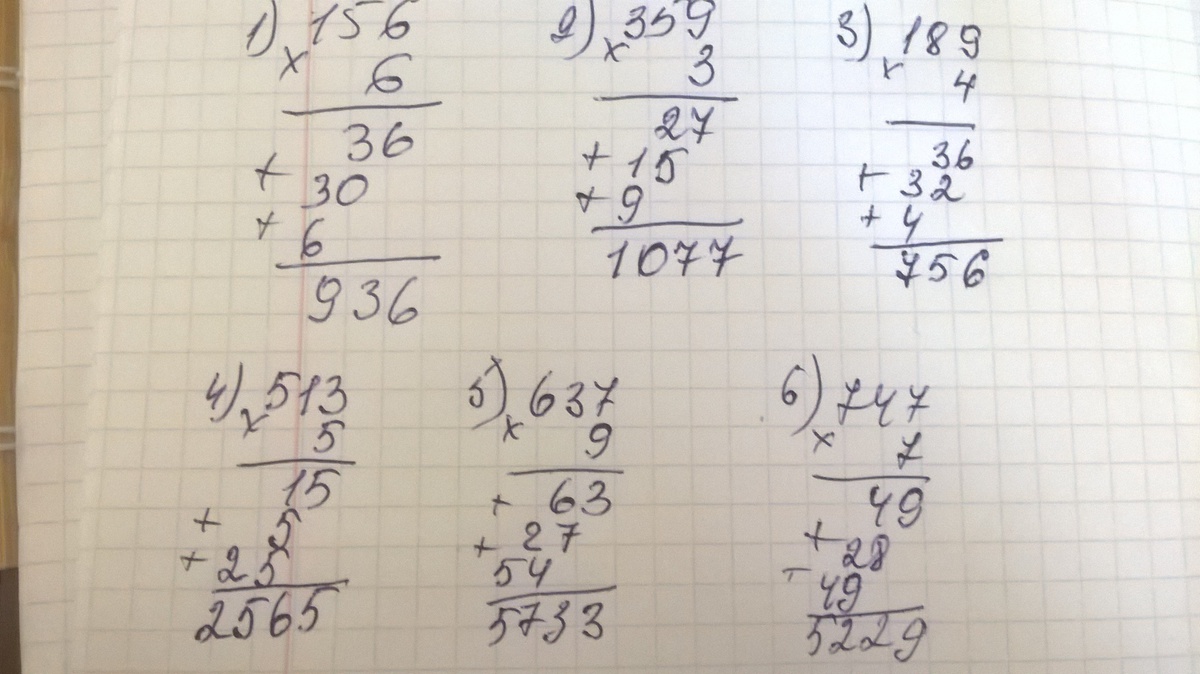 1) 156
x 6
36
+ 30
+ 6
936
2) 359
x 3
27
+ 15
+ 9
1077
3) 189
x 4
36
+ 32
+ 4
756
4) 513
x 5
15
+ 5
+ 25
2565
5) 637
x 9
+ 63
+ 27
54
5733
6) 747
x 7
49
+ 28
- 49
5229